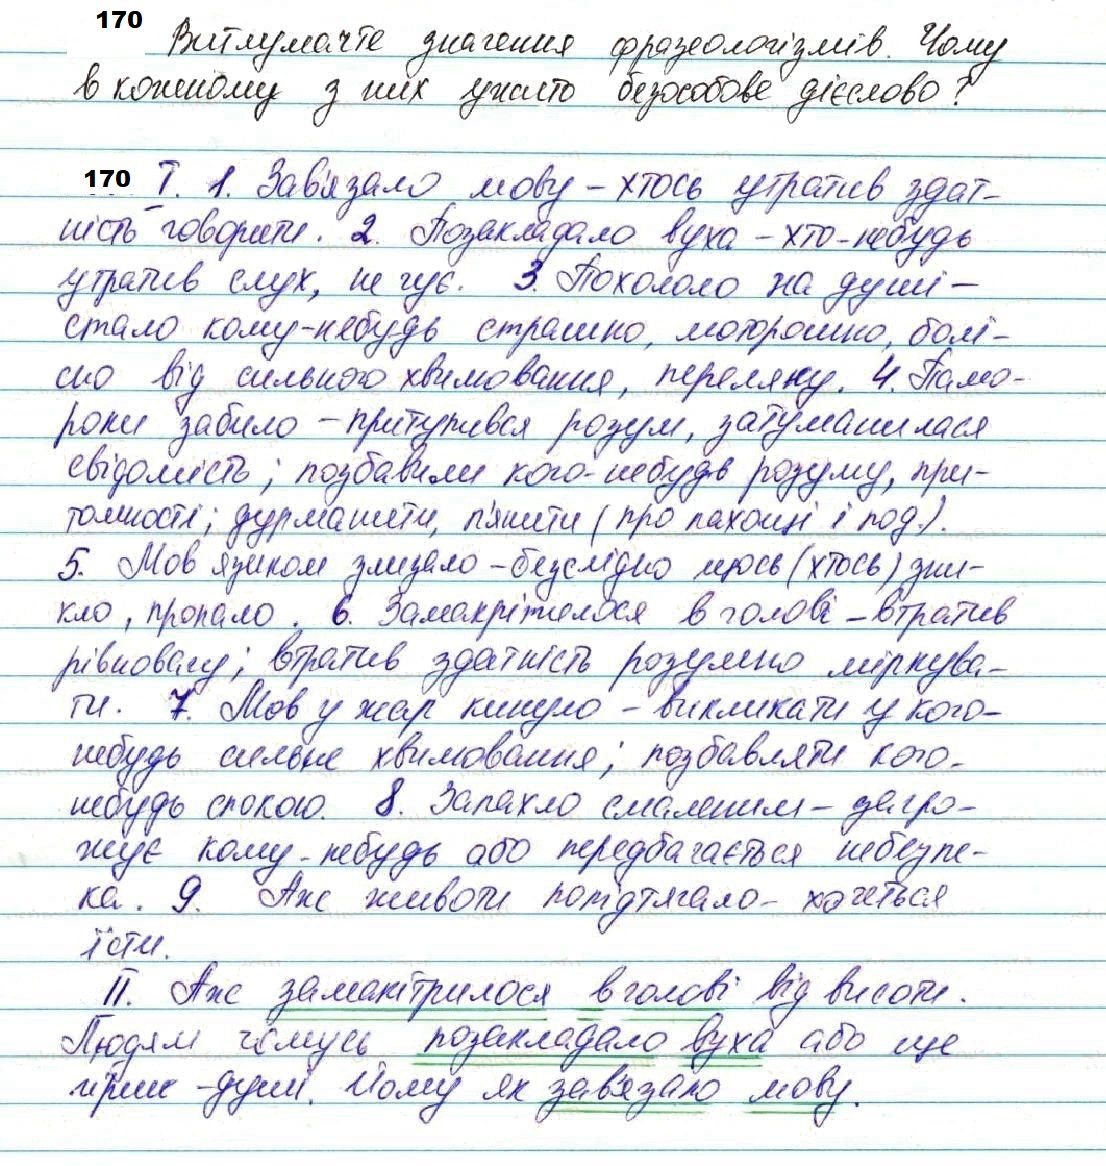 170
Витлумачте значення фразеологізмів. Чому
в кожному з них ужито безособове дієслово?
170 І. 1. Зав'язало мову – хтось утратив здат-
ність говорити. 2. Позакладало вуха – хто-небудь
утратив слух, не чує. 3. Похололо на душі –
стало кому-небудь страшно, моторошно, болі-
сно від сильного хвилювання, переляку. 4. Памо-
роки забило – притупився розум, затуманилася
свідомість; позбавили кого-небудь розуму, при-
томності; дурманити, п'янити (про пахощі і под.).
5. Мов язиком злизало – безслідно щось (хтось) зни-
кло, пропало. 6. Замакрітилося в голові – втратив
рівновагу; втратив здатність розумно міркува-
ти. 7. Мов у жар кинуло – викликати у кого-
небудь сильне хвилювання; позбавляти кого-
небудь спокою. 8. Запахло смаленим – загро-
жує кому-небудь або передбачається небезпе-
ка. 9. Аж животи попідтягало – хочеться
їсти.
ІІ. Аж замакітрилося в голові від висоти.
Людям чомусь позакладало вуха або ще
гірше – душі. Йому як зав'язало мову.